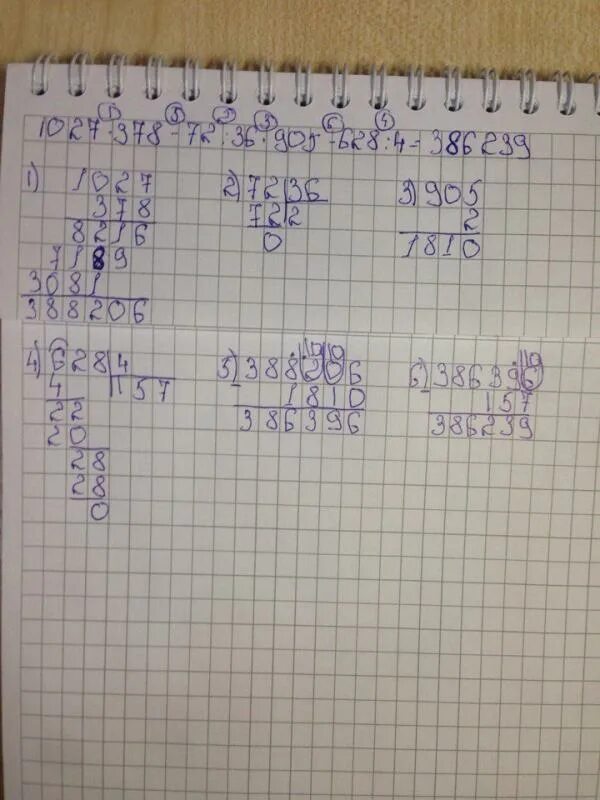 ① ⑤ ② ③ ⑥ ④
1027·378-72:36·905-628:4=386239
1) 1027
378
8216
7189
3081
388206
2) 72|36
72|2
0
3) 905
2
1810
4) 628|4
4|157
22
20
28
28
0
5) 10 10
-388206
1810
386396
6) 10
-386396
157
386239